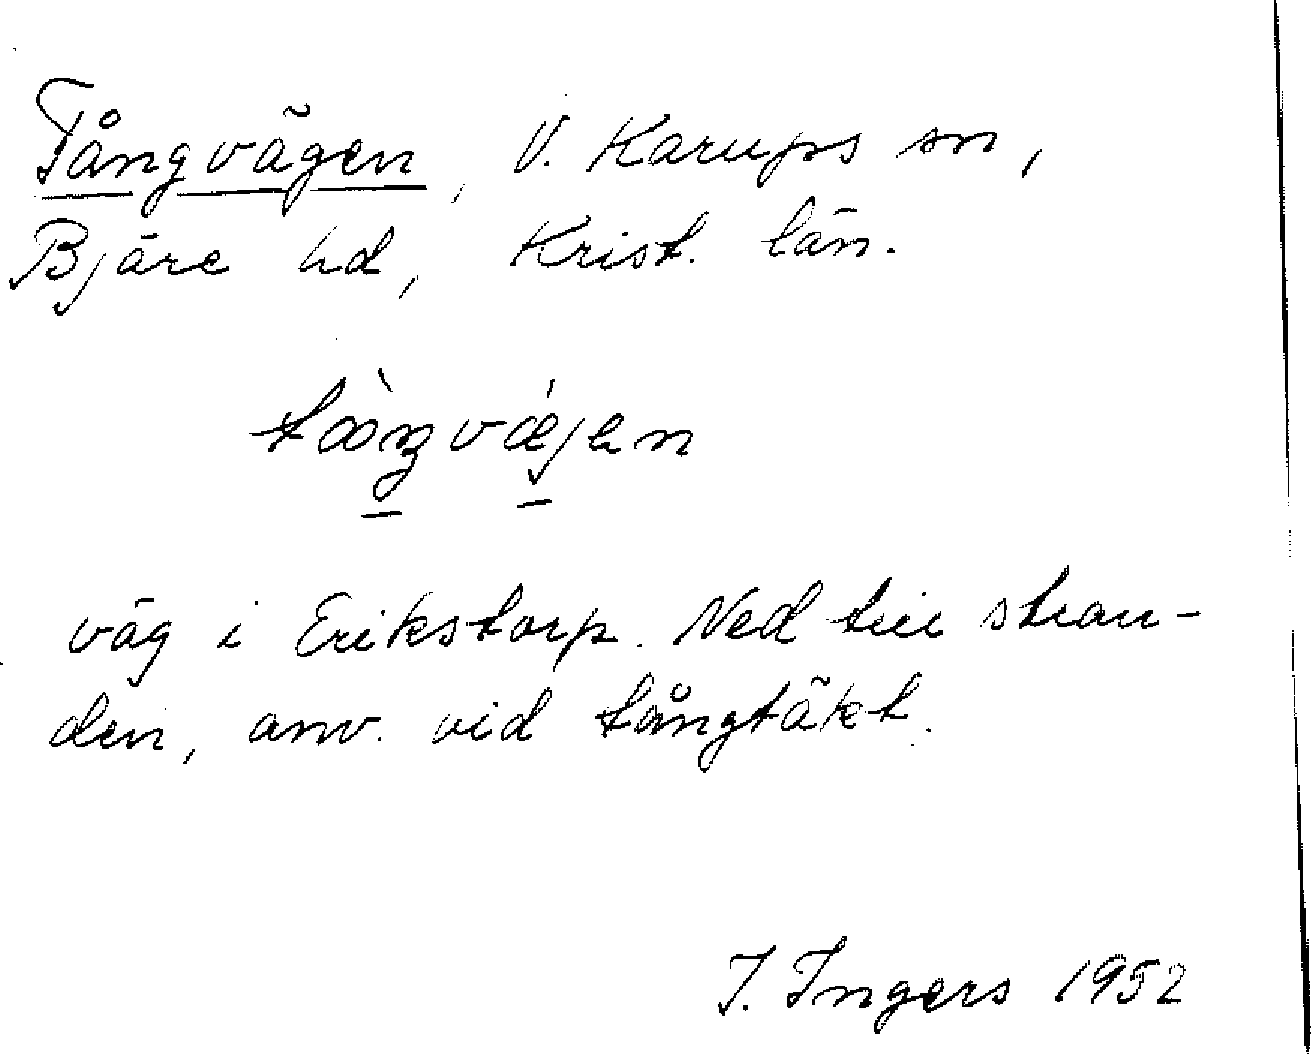 Tångvägen, V. Karups sn,
Bjäre hd, Krist. län.
väg i Erikstorp. Ned till stran-
den, anv. vid tångtäkt.
I. Ingers 1952